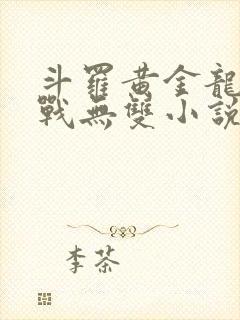 斗羅黃金龍
戰無雙小說
李茶